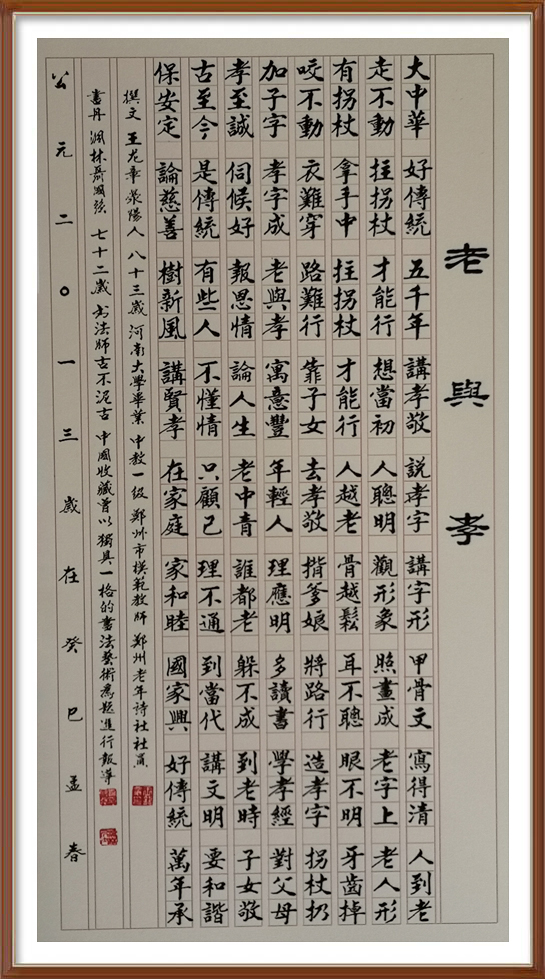 老與孝
大中華 好傳統 五千年 講孝敬 說孝字 講字形 甲骨文 寫得清 人到老
走不動 拄拐杖 才能行 想當初 人聰明 觀形象 照畫成 老字上 老人形
有拐杖 拿手中 拄拐杖 才能行 人越老 骨越鬆 耳不聰 眼不明 牙齒掉
咬不動 衣難穿 路難行 靠子女 去孝敬 揹爹娘 將路行 造孝字 拐杖扔
加子字 孝字成 老與孝 寓意豐 年輕人 理應明 多讀書 學孝經 對父母
孝至誠 伺候好 報恩情 論人生 老中青 誰都老 躲不成 到老時 子女敬
古至今 是傳統 有些人 不懂情 只顧己 理不通 到當代 講文明 要和諧
保安定 論慈善 樹新風 講賢孝 在家庭 家和睦 國家興 好傳統 萬年承
撰文 王龙章 荥陽人 八十三歲 河南大學畢業 中教一级 鄭州市模範教師 鄭州老年诗社社員
書丹 泗林聶國強 七十二歲 书法師古不泥古 中國收藏曾以獨具一格的書法藝術爲题進行報導
公元二〇一三歲在癸巳孟春